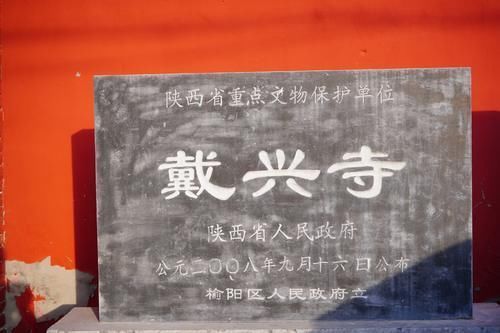 陕西省重点文物保护单位
戴兴寺
陕西省人民政府
公元二〇〇八年九月十六日公布
榆阳区人民政府立